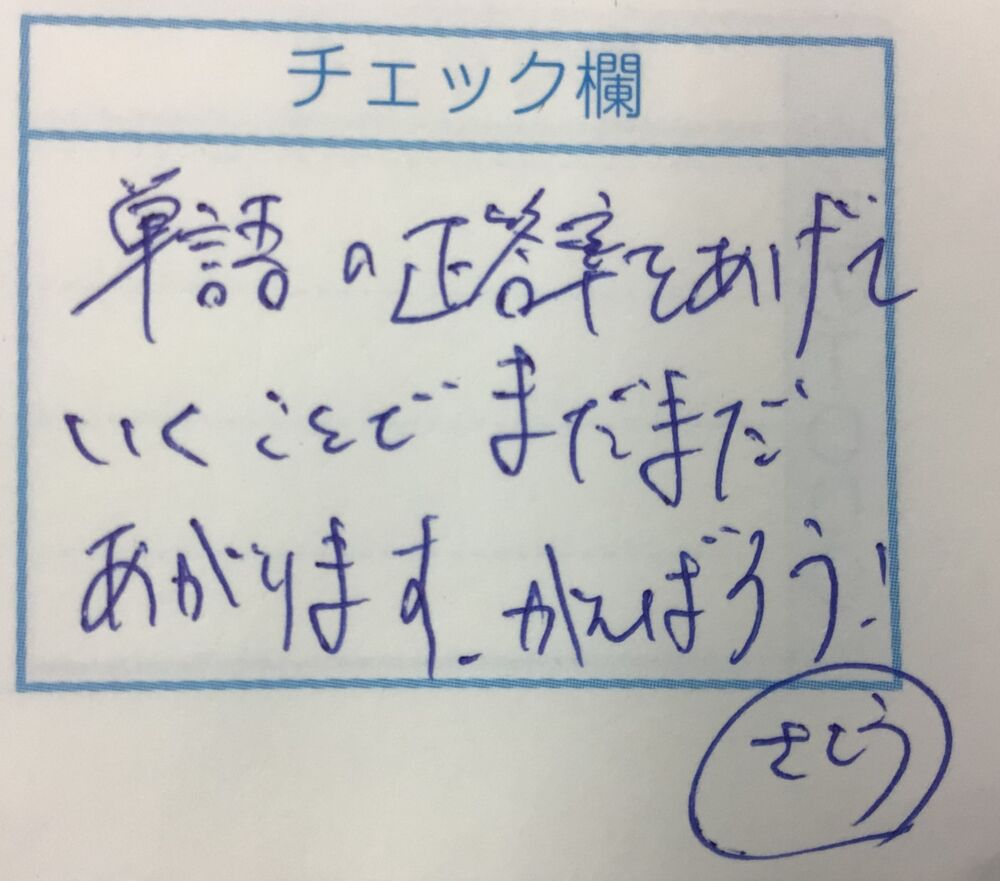 チェック欄
単語の正答率をあげて
いくことでまだまだ
あがります.がんばろう!
さとう